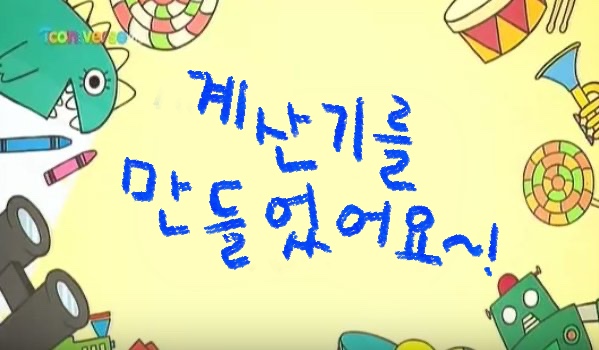 iconiverse
계산기를
만들었어요~!